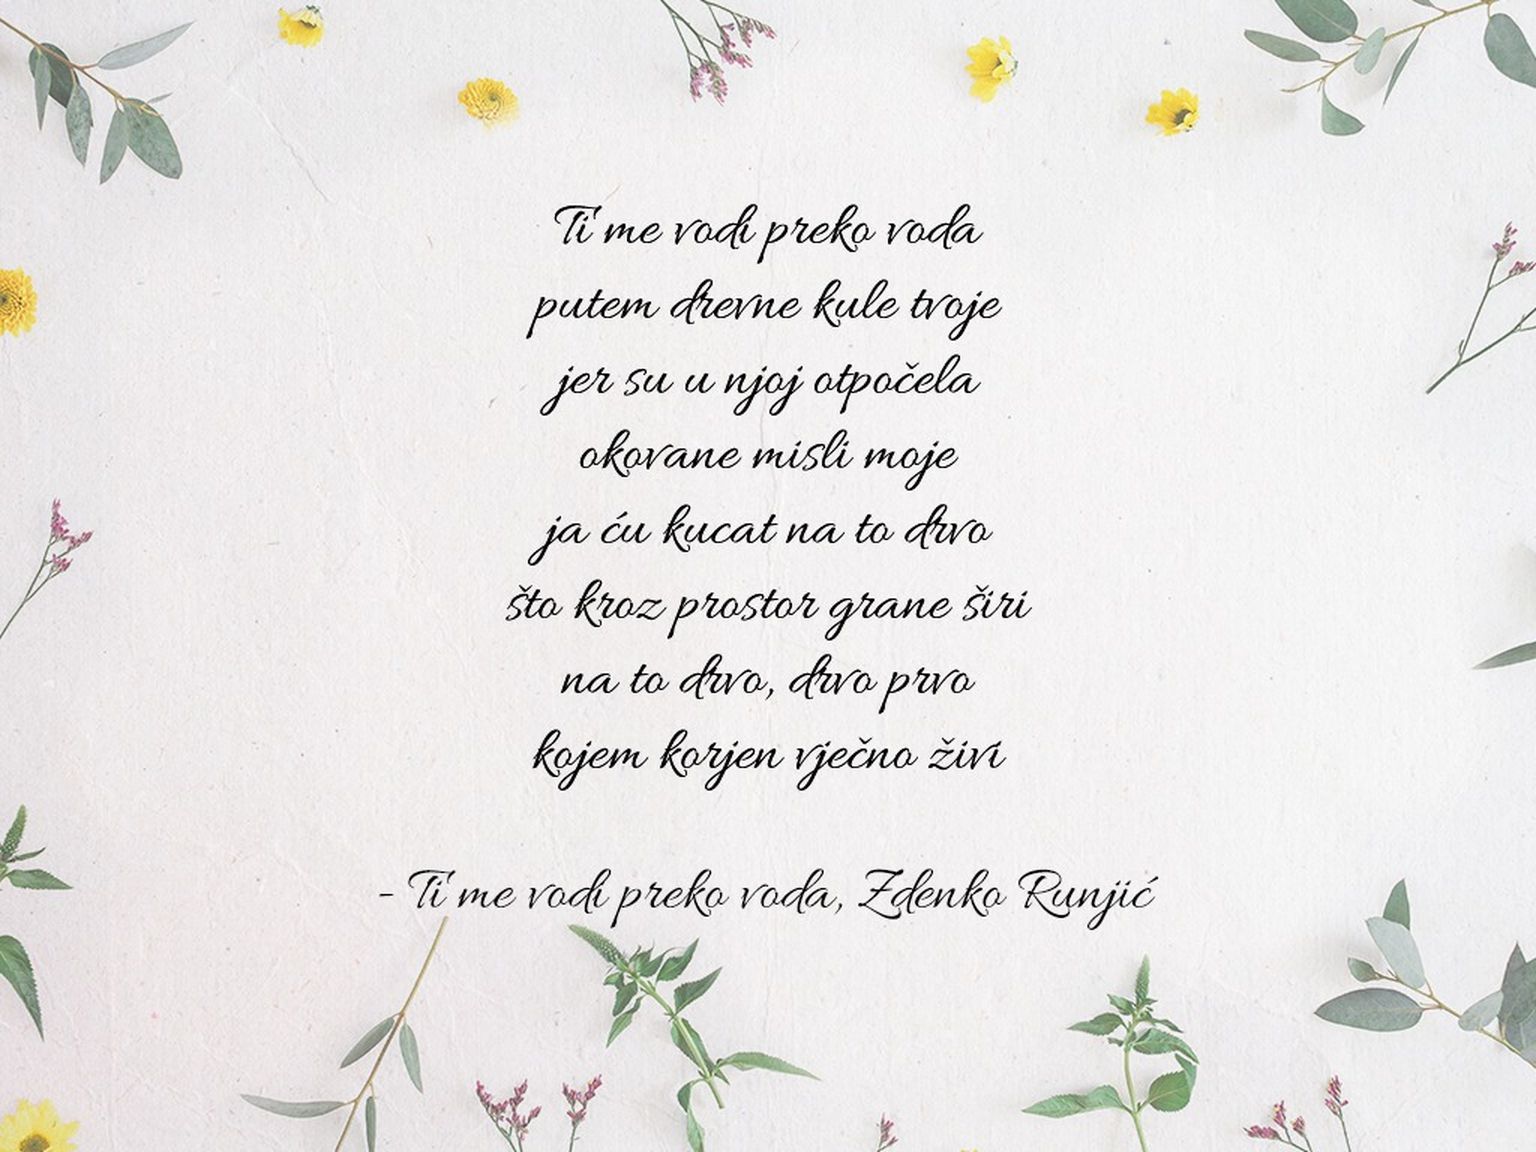 Ti me vodi preko voda
putem drevne kule tvoje
jer su u njoj otpočela
okovane misli moje
ja ću kucat na to drvo
što kroz prostor grane širi
na to drvo, drvo prvo
kojem korjen vječno živi
- Ti me vodi preko voda, Zdenko Runjić